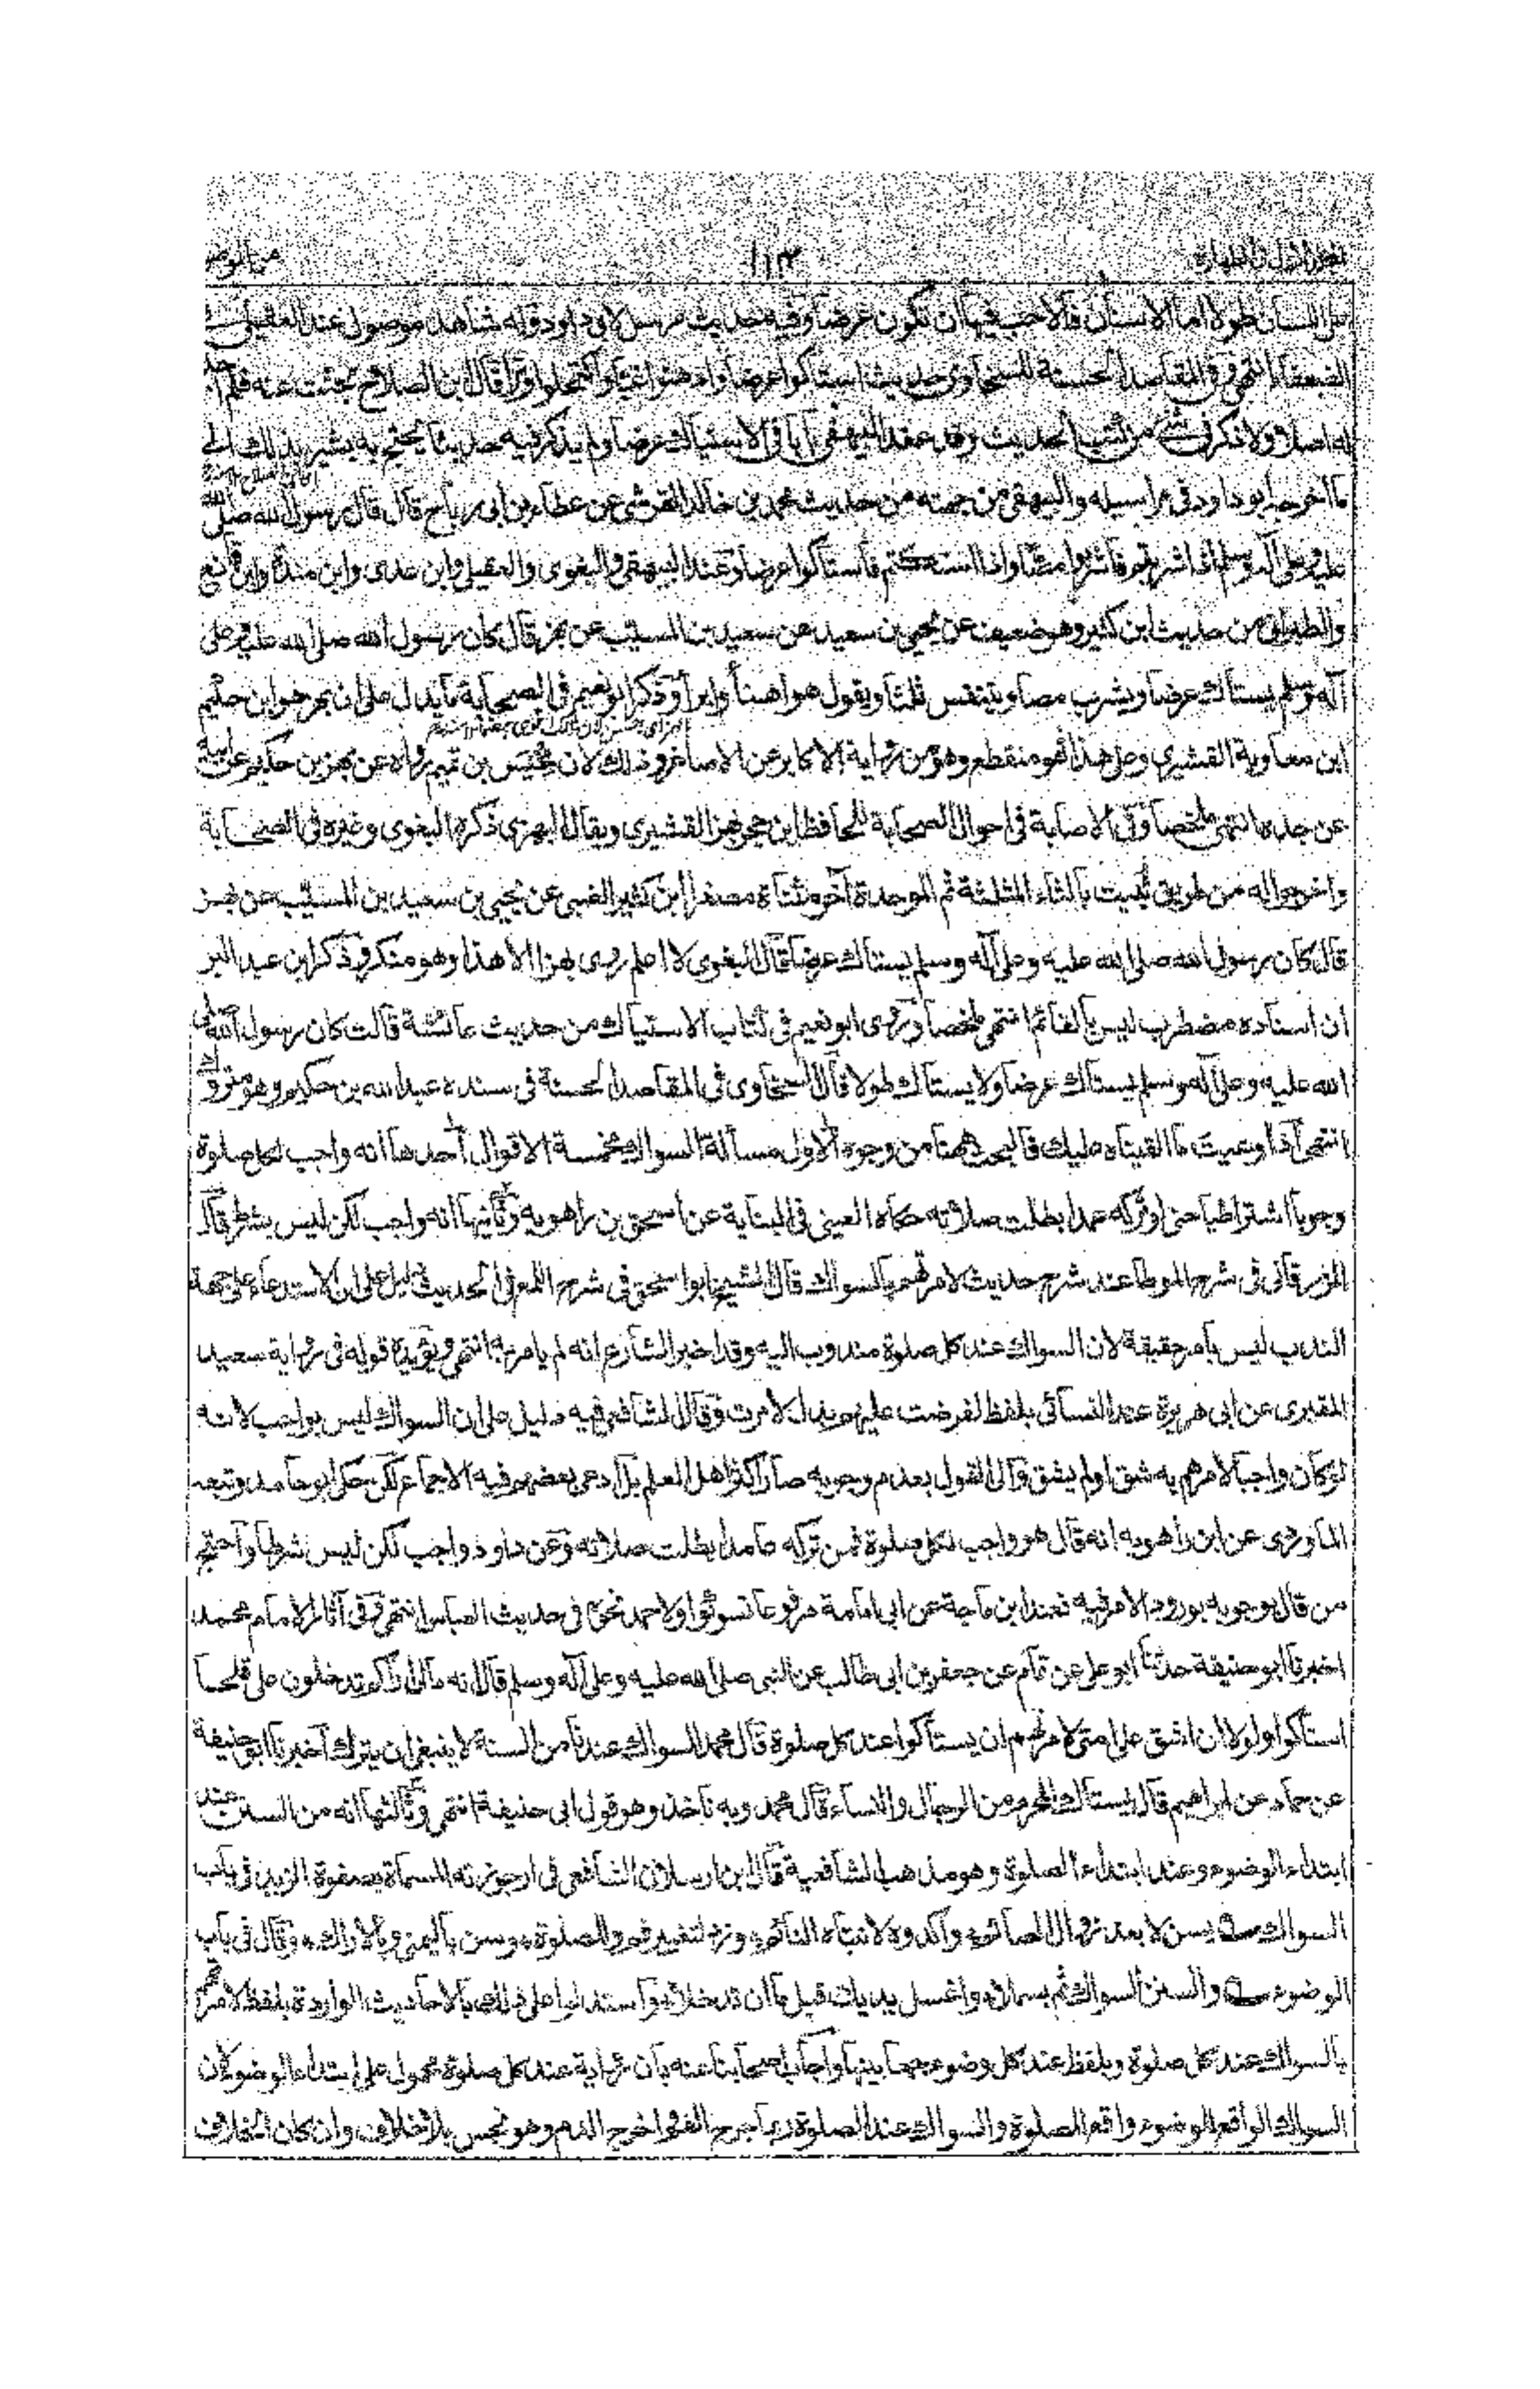 ١١٣
على اللسان طولا اما الاسنان فالاحب فيها ان تكون عرضا وفيه حديث مرسل لابي داود وله شاهد موصول عند العقيلي في
الضعفاء انتهى وفي المقاصد الحسنة للسخاوي حديث استاكوا عرضا وادهنوا غبا واكتحلوا وترا قال ابن الصلاح بحثت عنه فلم اجد
له اصلا ولا ذكرا في شئ من كتب الحديث وقد عقد البيهقي بابا في الاستياك عرضا ولم يذكر فيه حديثا يحتج به يشير بذلك الى
ما اخرجه ابو داود في مراسيله والبيهقي من جهته من حديث محمد بن خالد القرشي عن عطاء بن ابي رباح قال قال رسول الله صلى الله
عليه وعلى آله وسلم اذا شربتم فاشربوا مصا واذا استكتم فاستاكوا عرضا وعند البيهقي والبغوي والعقيلي وابن عدي وابن مندة وابن قانع
والطبراني من حديث ابن كثير وهو ضعيف عن يحيى بن سعيد عن سعيد بن المسيب عن بهز قال كان رسول الله صلى الله عليه وعلى
آله وسلم يستاك عرضا ويشرب مصا ويتنفس ثلثا ويقول هو اهنأ وابرأ وذكر ابو نعيم في الصحابة ما يدل على ان بهز هو ابن حكيم
ابن معاوية القشيري وعلى هذا فهو منقطع وهو من رواية الاكابر عن الاصاغر وذلك لان مخيس بن تميم رواه عن بهز بن حكيم عن ابيه
عن جده انتهى ملخصا وفي الاصابة في احوال الصحابة للحافظ ابن حجر بهز القشيري ويقال البهزي ذكره البغوي وغيره في الصحابة
واخرجوا له من طريق ثبيت بالثاء المثلثة ثم الموحدة آخره مثناة مصغرا ابن كثير الضبي عن يحيى بن سعيد بن المسيب عن بهز
قال كان رسول الله صلى الله عليه وعلى آله وسلم يستاك عرضا قال البغوي لا اعلم روى بهز الا هذا وهو منكر وذكر ابن عبد البر
ان اسناده مضطرب ليس بالقائم انتهى ملخصا وروى ابو نعيم في كتاب الاستياك من حديث عائشة قالت كان رسول الله صلى
الله عليه وعلى آله وسلم يستاك عرضا ولا يستاك طولا قال السخاوي في المقاصد الحسنة في سنده عبد الله بن حكيم وهو متروك
انتهى اذا وعيت ما القيناه عليك فالبحث ههنا من وجوه الاول مسألة السواك مخمسة الاقوال احدها انه واجب لكل صلوة
وجوبا اشتراطيا حتى لو تركه عمدا بطلت صلاته حكاه العيني في البناية عن اسحق بن راهويه وثانيها انه واجب لكن ليس بشرط قال
الزرقاني في شرح الموطا عند شرح حديث لامرتهم بالسواك قال الشيخ ابو اسحق في شرح اللمع في الحديث دليل على ان الاستدعاء على جهة
الندب ليس بامر حقيقة لان السواك عند كل صلوة مندوب اليه وقد اخبر الشارع انه لم يامر به انتهى ويؤيده قوله في رواية سعيد
المقبري عن ابي هريرة عند النسائي بلفظ لفرضت عليهم بدل لامرت وقال الشافعي فيه دليل على ان السواك ليس بواجب لانه
لو كان واجبا لامرهم به شق او لم يشق والى القول بعدم وجوبه صار اكثر اهل العلم بل ادعى بعضهم فيه الاجماع لكن حكى ابو حامد وتبعه
الماوردي عن ابن راهويه انه قال هو واجب لكل صلوة فمن تركه عامدا بطلت صلاته وعن داود واجب لكن ليس شرطا واحتج
من قال بوجوبه بورود الامر فيه فعند ابن ماجة عن ابي امامة مرفوعا تسوكوا ولاحمد نحوه في حديث العباس انتهى وفي آثار الامام محمد
اخبرنا ابو حنيفة حدثنا ابو علي عن تمام عن جعفر بن ابي طالب عن النبي صلى الله عليه وعلى آله وسلم قال انه مالي اراكم تدخلون على قلحا
استاكوا ولولا ان اشق على امتي لامرتهم ان يستاكوا عند كل صلوة قال محمد السواك عندنا من السنة لا ينبغي ان يترك اخبرنا ابو حنيفة
عن حماد عن ابراهيم قال يستاك المحرم من الرجال والنساء قال محمد وبه ناخذ وهو قول ابي حنيفة انتهى وثالثها انه من السنن عند
ابتداء الوضوء وعند ابتداء الصلوة وهو مذهب الشافعية قال ابن ارسلان الشافعي في ارجوزته المسماة بصفوة الزبد في باب
السواك يسن لا بعد زوال الصائم واكدوه لانتباه النائم ونزم لتغيير فم وللصلوة وسن باليمنى وبالاراك وقال في باب
الوضوء والسنن السواك ثم بسملا واغسل يديك قبل ما ان تدخلا واستدلوا على ذلك بالاحاديث الواردة بلفظ لامرتهم
بالسواك عند كل صلوة وبلفظ عند كل وضوء جمعا بينها واجاب اصحابنا عنه بان رواية عند كل صلوة محمول على ابتداء الوضوء لان
السواك الواقع للوضوء واقع للصلوة والسواك عند الصلوة ربما جرح الفم واخرج الدم وهو نجس بلا خلاف وان كان الخلاف